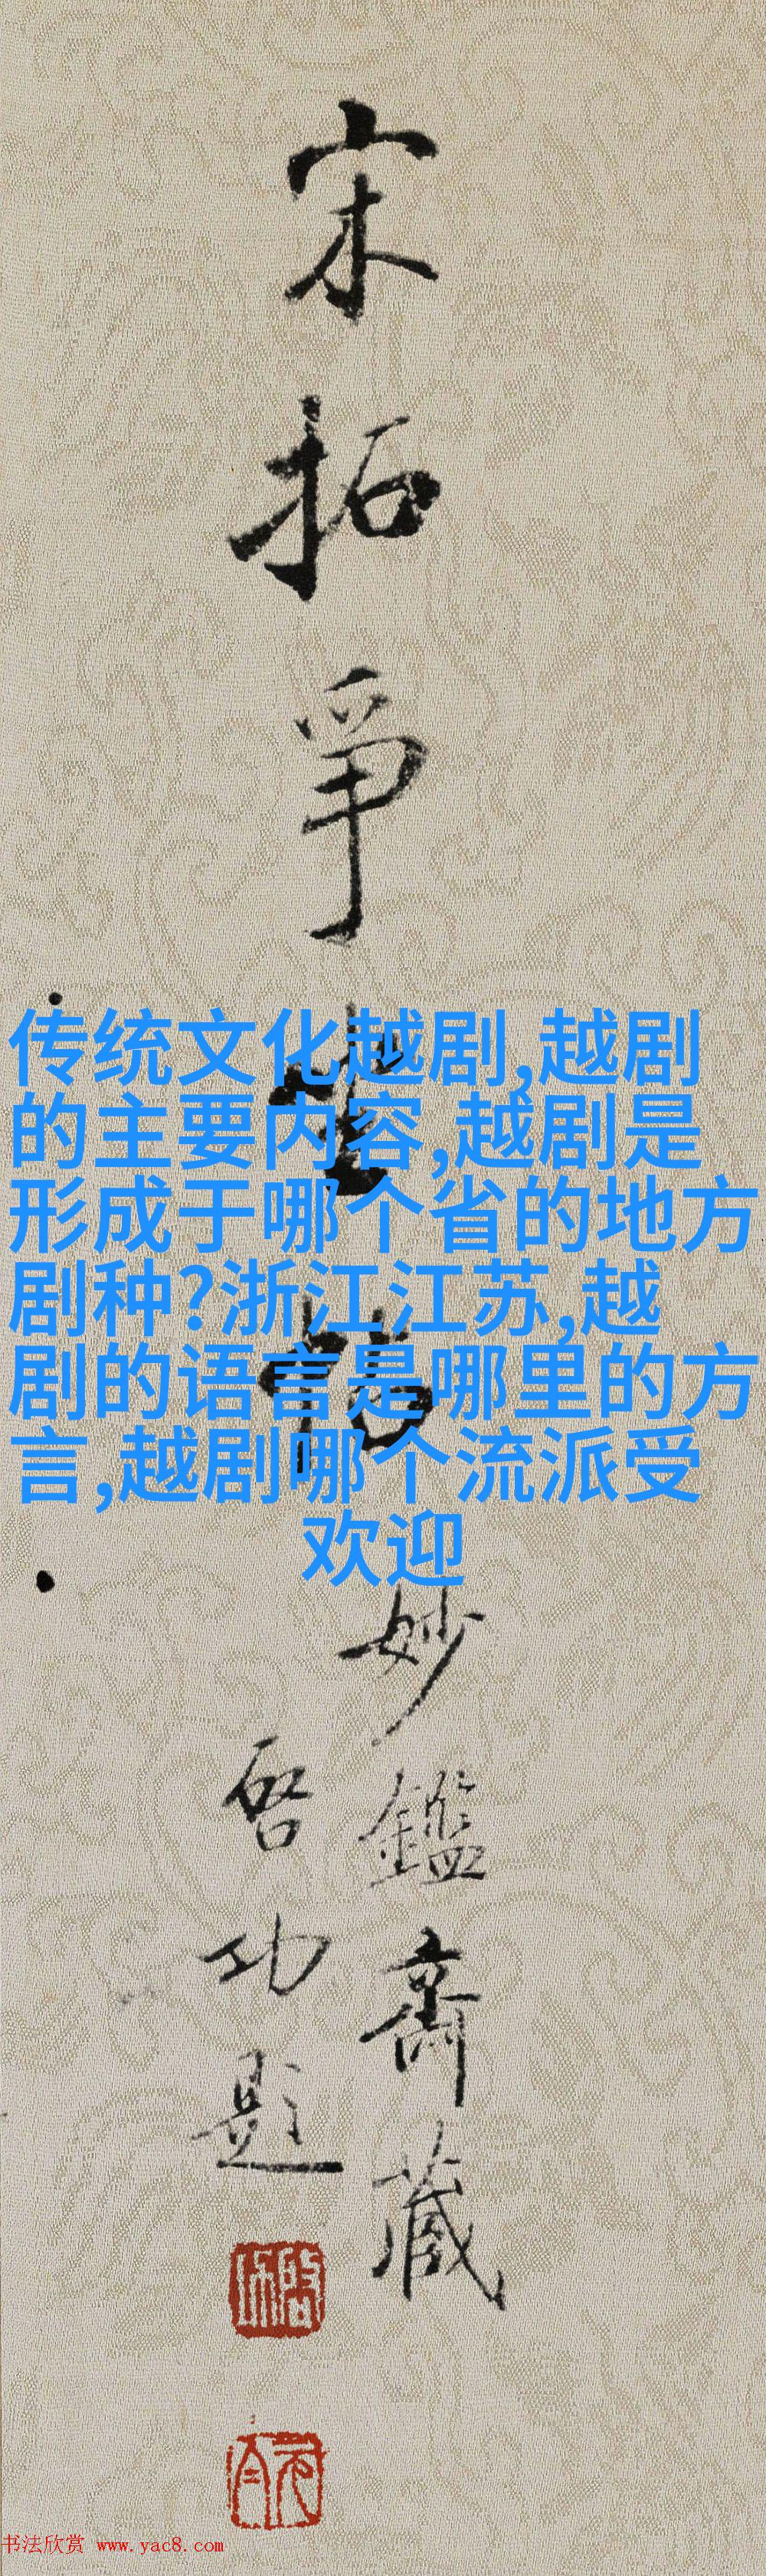 宋拓争坐帖
妙鑑斋藏
启功题
传统文化越剧,越剧
的主要内容,越剧是
形成于哪个省的地方
剧种?浙江江苏,越
剧的语言是哪里的方
言,越剧哪个流派受
欢迎
书法欣赏 www.yac8.com